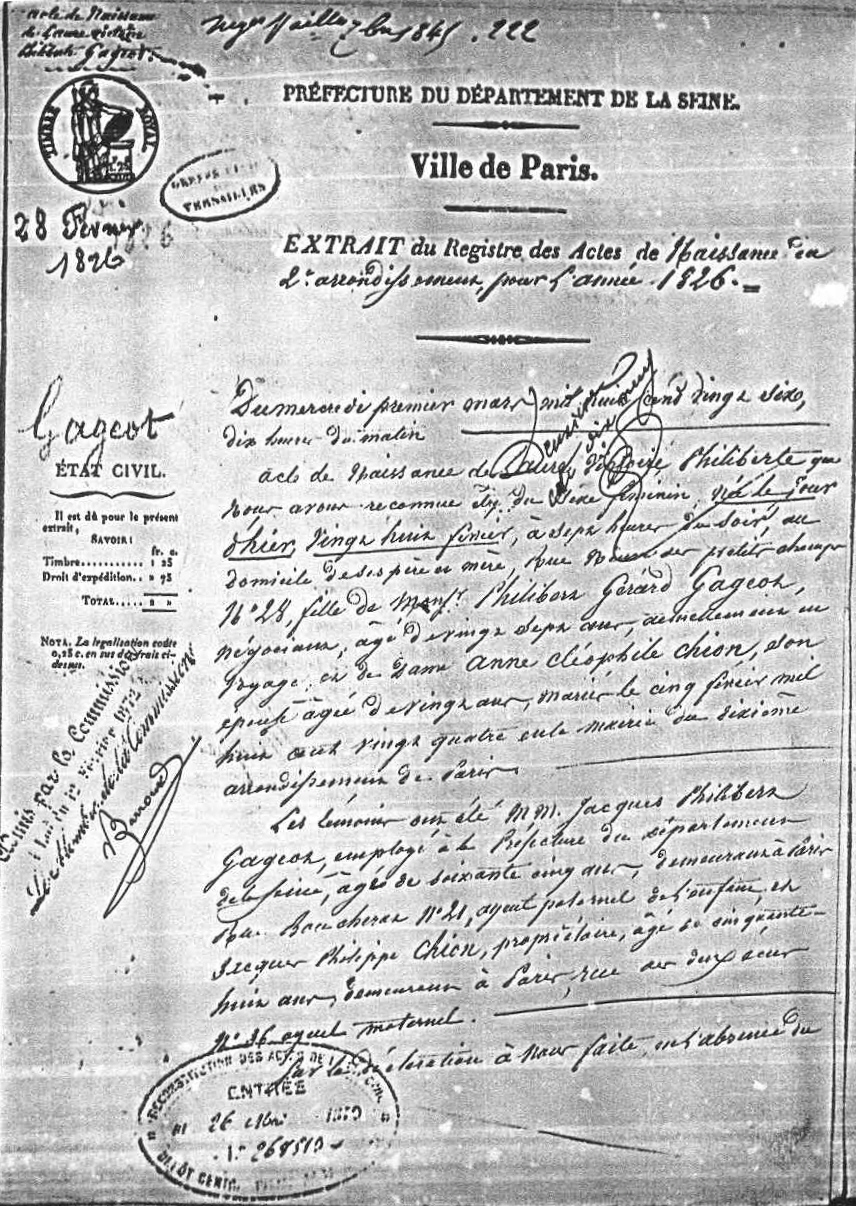 acte de Naissance
de Laure Victoire
Philiberte Gageot
1845. 222
TIMBRE ROYAL
28 Février
1826
PRÉFECTURE DU DÉPARTEMENT DE LA SEINE.
Ville de Paris.
EXTRAIT du Registre des Actes de Naissance du
2e arrondissement, pour l'année 1826.
Gageot
ÉTAT CIVIL.
Il est dû pour le présent
extrait,
SAVOIR:
fr. c.
Timbre........... 1 25
Droit d'expédition.. » 75
TOTAL..... 2 »
NOTA. La légalisation coûte
0,25 c. en sus des frais ci-
dessus.
Admis par la Commission
Loi du 12 Février 1872
Le Membre de la Commission
Du mercredi premier mars mil huit cent vingt six,
dix heures du matin
acte de Naissance de Laure Victoire Philiberte que
nous avons reconnue être du sexe féminin, née le jour
d'hier, vingt huit février, à sept heures du soir, au
domicile de ses père et mère, Rue Neuve des petits champs
No 28, fille de Monsr Philibert Gérard Gageot,
négociant, âgé de vingt sept ans, actuellement en
voyage, et de Dame Anne Cléophile Chion, son
épouse âgée de vingt ans, mariés le cinq février mil
huit cent vingt quatre en la mairie du sixième
arrondissement de Paris.
Les témoins ont été MM. Jacques Philibert
Gageot, employé à la Préfecture du Département
de la Seine, âgé de soixante cinq ans, demeurant à Paris
Rue Boucherat No 21, ayeul paternel de l'enfant, et
Jacques Philippe Chion, propriétaire, âgé de cinquante-
huit ans, demeurant à Paris, rue des deux
No 36 ayeul maternel.
Sur la déclaration à nous faite, en l'absence du
RECONSTITUTION DES ACTES DE L'ÉTAT CIVIL
ENTRÉE
26 Mai
DÉPÔT CENTRAL